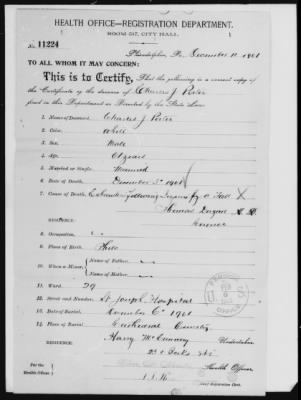 HEALTH OFFICE—REGISTRATION DEPARTMENT.
ROOM 517, CITY HALL.
No. 11224 Philadelphia, Pa., December 11 1901
TO ALL WHOM IT MAY CONCERN:
This is to Certify, That the following is a correct copy of
the Certificate of the decease of Charles J. Porter
filed in this Department as Directed by the State Law.
1. Name of Deceased, Charles J. Porter
2. Color, White
3. Sex, Male
4. Age, 61 years
5. Married or Single, Married
6. Date of Death, December 3d 1901
7. Cause of Death, Exhaustion following Injuries by a Fall X
Thomas Dugan M. D.
RESIDENCE: Coroner
8. Occupation,
9. Place of Birth, Phila
10. When a Minor, Name of Father,
Name of Mother,
11. Ward, 29
12. Street and Number, St. Joseph Hospital
13. Date of Burial, December 6th 1901
14. Place of Burial, Cathedral Cemetery
Harry McCunney Undertaker.
RESIDENCE,
For the
Health Officer Health Officer.
Asst. Registration Clerk.
PENSION
OFFICE